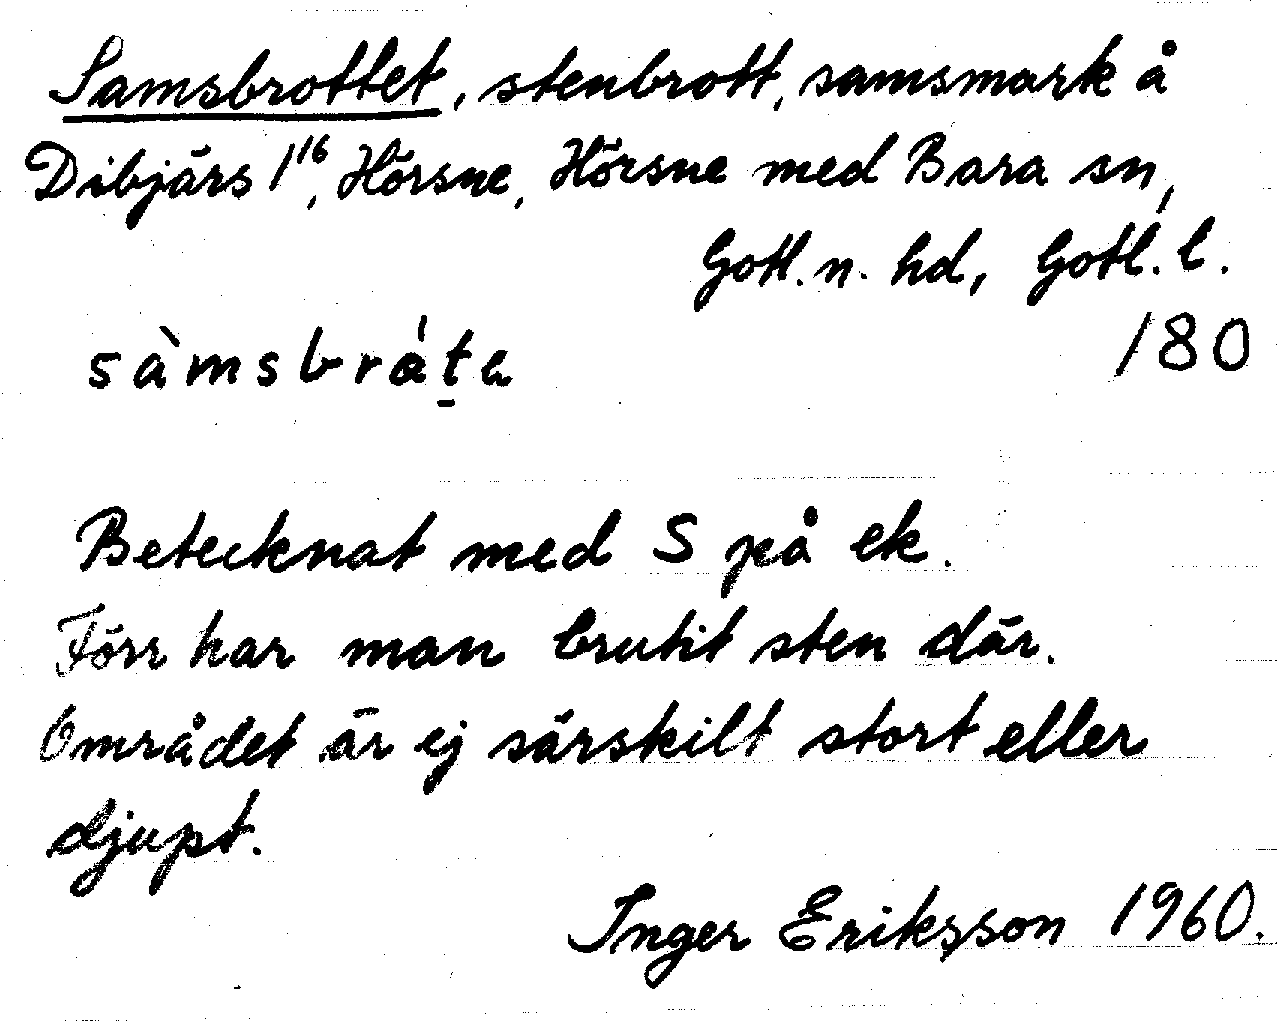 Samsbrottet, stenbrott, samsmark å
Dibjärs 1¹⁶, Hörsne, Hörsne med Bara sn,
Gotl. n. hd, Gotl. l.
180
sàmsbråta
Betecknat med S på ek.
Förr har man brutit sten där.
Området är ej särskilt stort eller
djupt.
Inger Eriksson 1960.